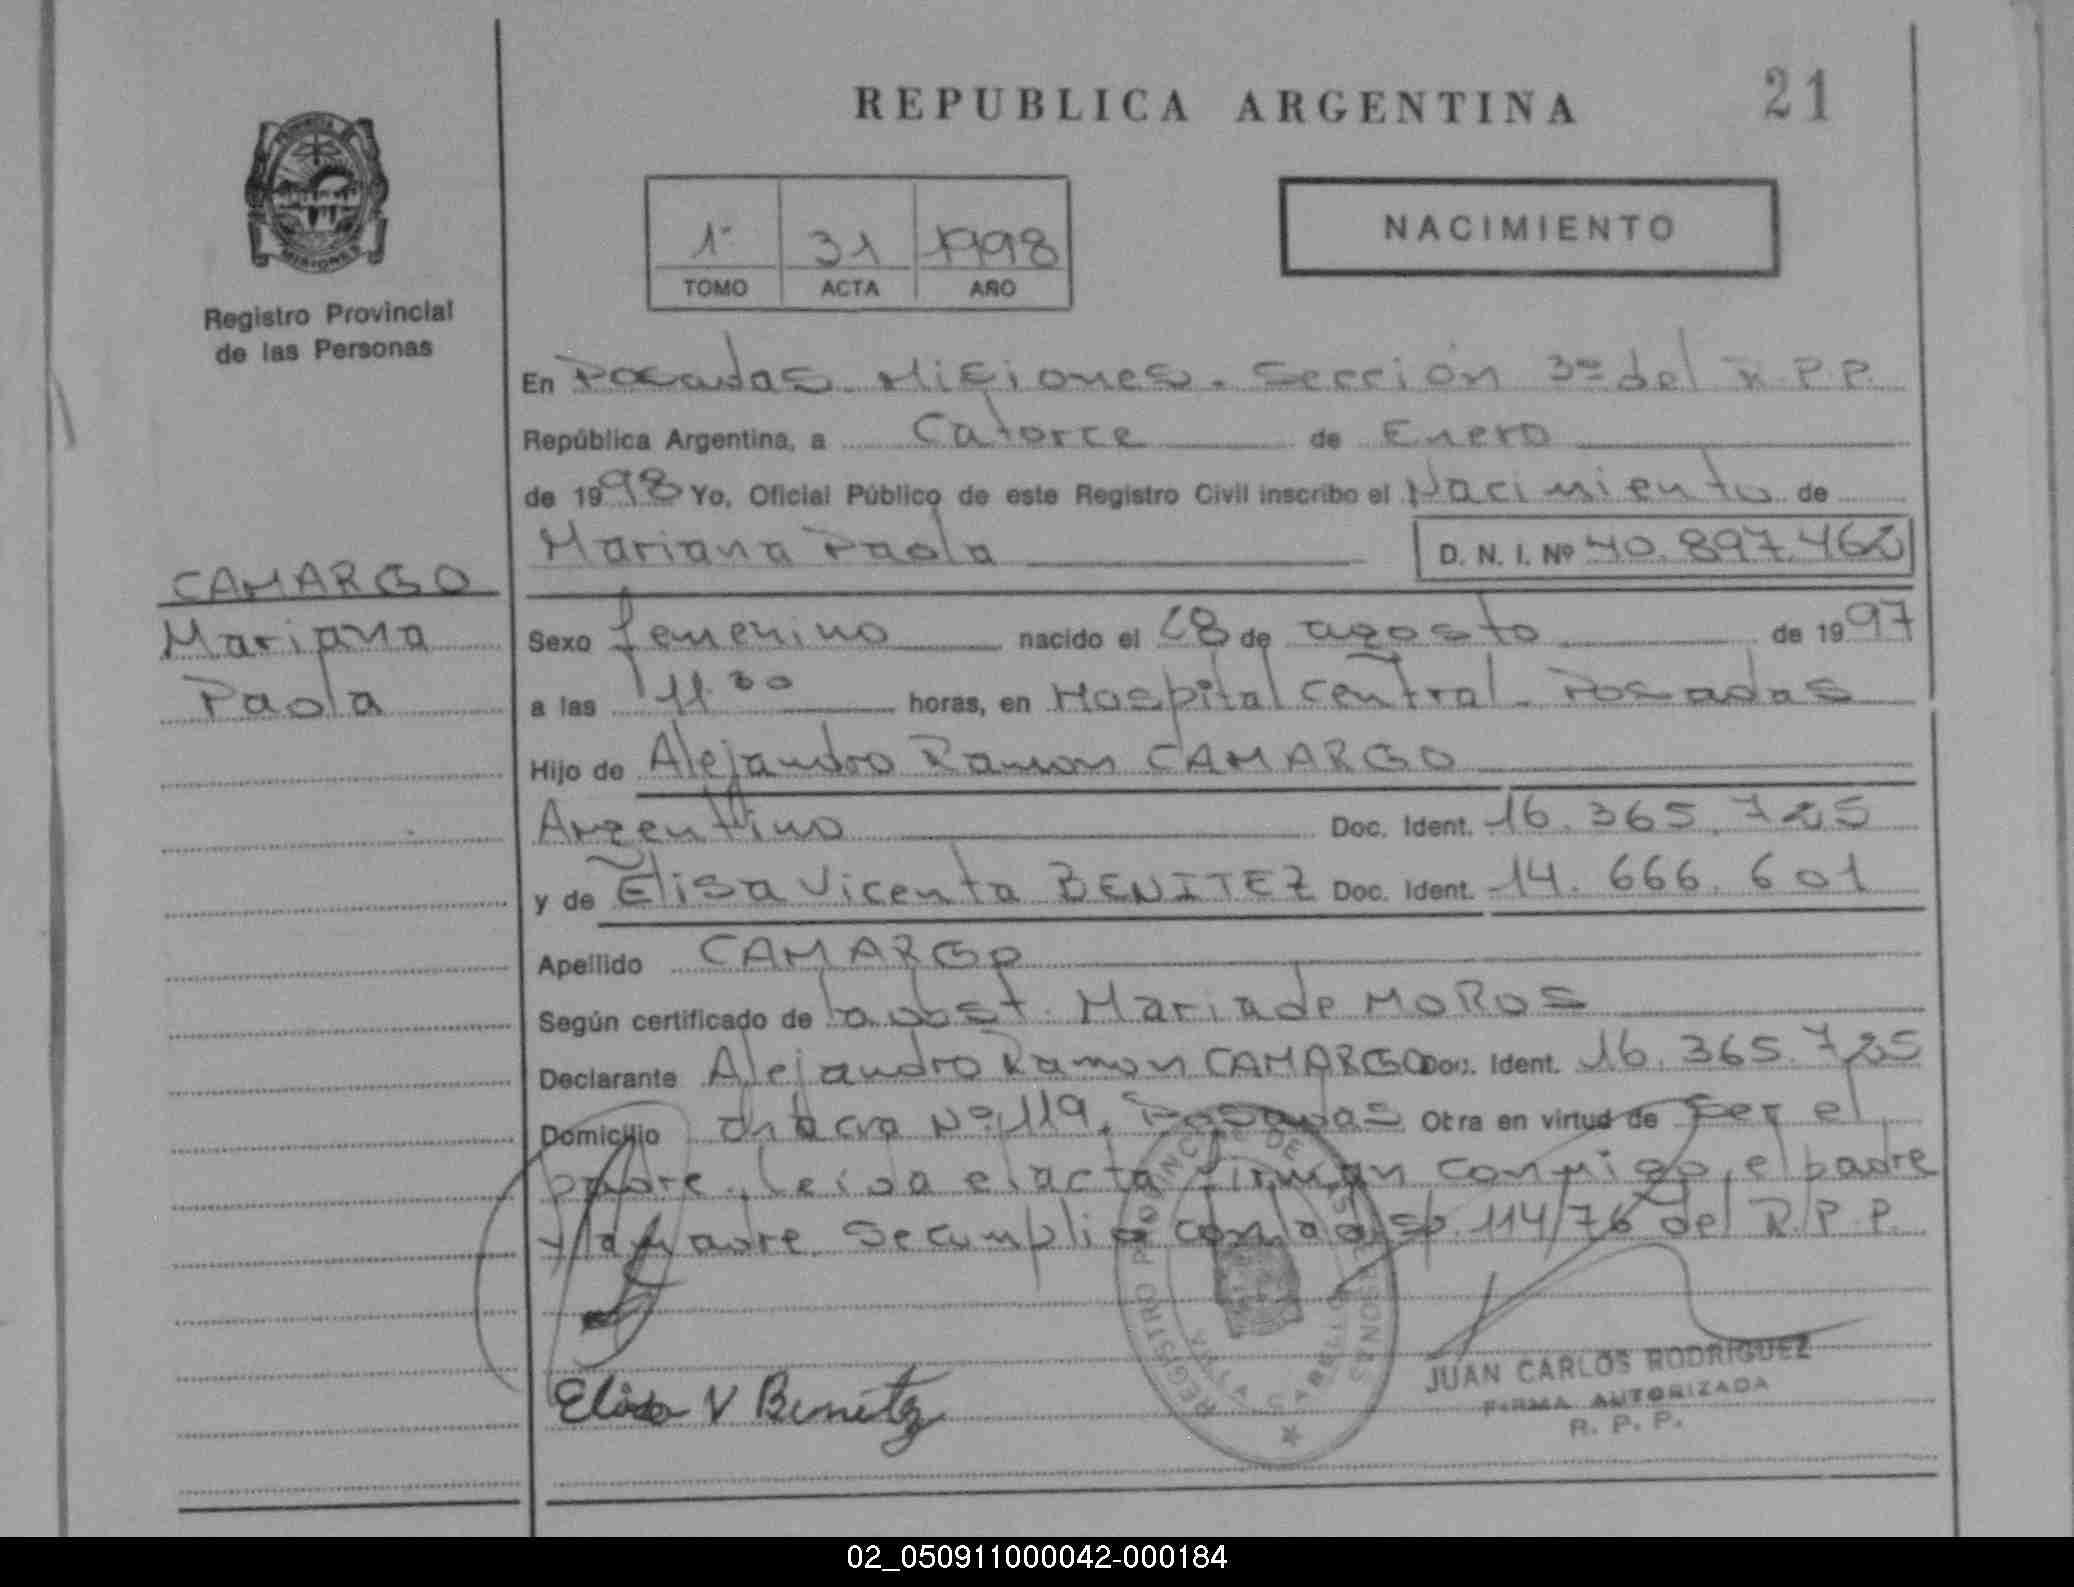 REPUBLICA ARGENTINA
21
PROVINCIA DE MISIONES
Registro Provincial
de las Personas
1º 31 1998
TOMO ACTA AÑO
NACIMIENTO
En Posadas. Misiones. Sección 3º del R.P.P.
República Argentina, a Catorce de Enero
de 1998 Yo, Oficial Público de este Registro Civil inscribo el Nacimiento de
Mariana Paola D. N. I. Nº 40.897.462
CAMARGO
Mariana
Paola
Sexo femenino nacido el 28 de agosto de 1997
a las 11.30 horas, en Hospital Central. Posadas
Hijo de Alejandro Ramon CAMARGO
Argentino Doc. Ident. 16.365.725
y de Elisa Vicenta BENITEZ Doc. Ident. 14.666.601
Apellido CAMARGO
Según certificado de la obst. Maria de MOROS
Declarante Alejandro Ramon CAMARGO Doc. Ident. 16.365.725
Domicilio chacra Nº 119. Posadas Otra en virtud de Ser el
padre. Leida el acta firman conmigo, el padre
y la madre. Se cumplio con la disp. 114/76 del R.P.P.
REGISTRO PROVINCIAL DE LAS PERSONAS
Elisa V Benitez
JUAN CARLOS RODRIGUEZ
FIRMA AUTORIZADA
R. P. P.
02_050911000042-000184